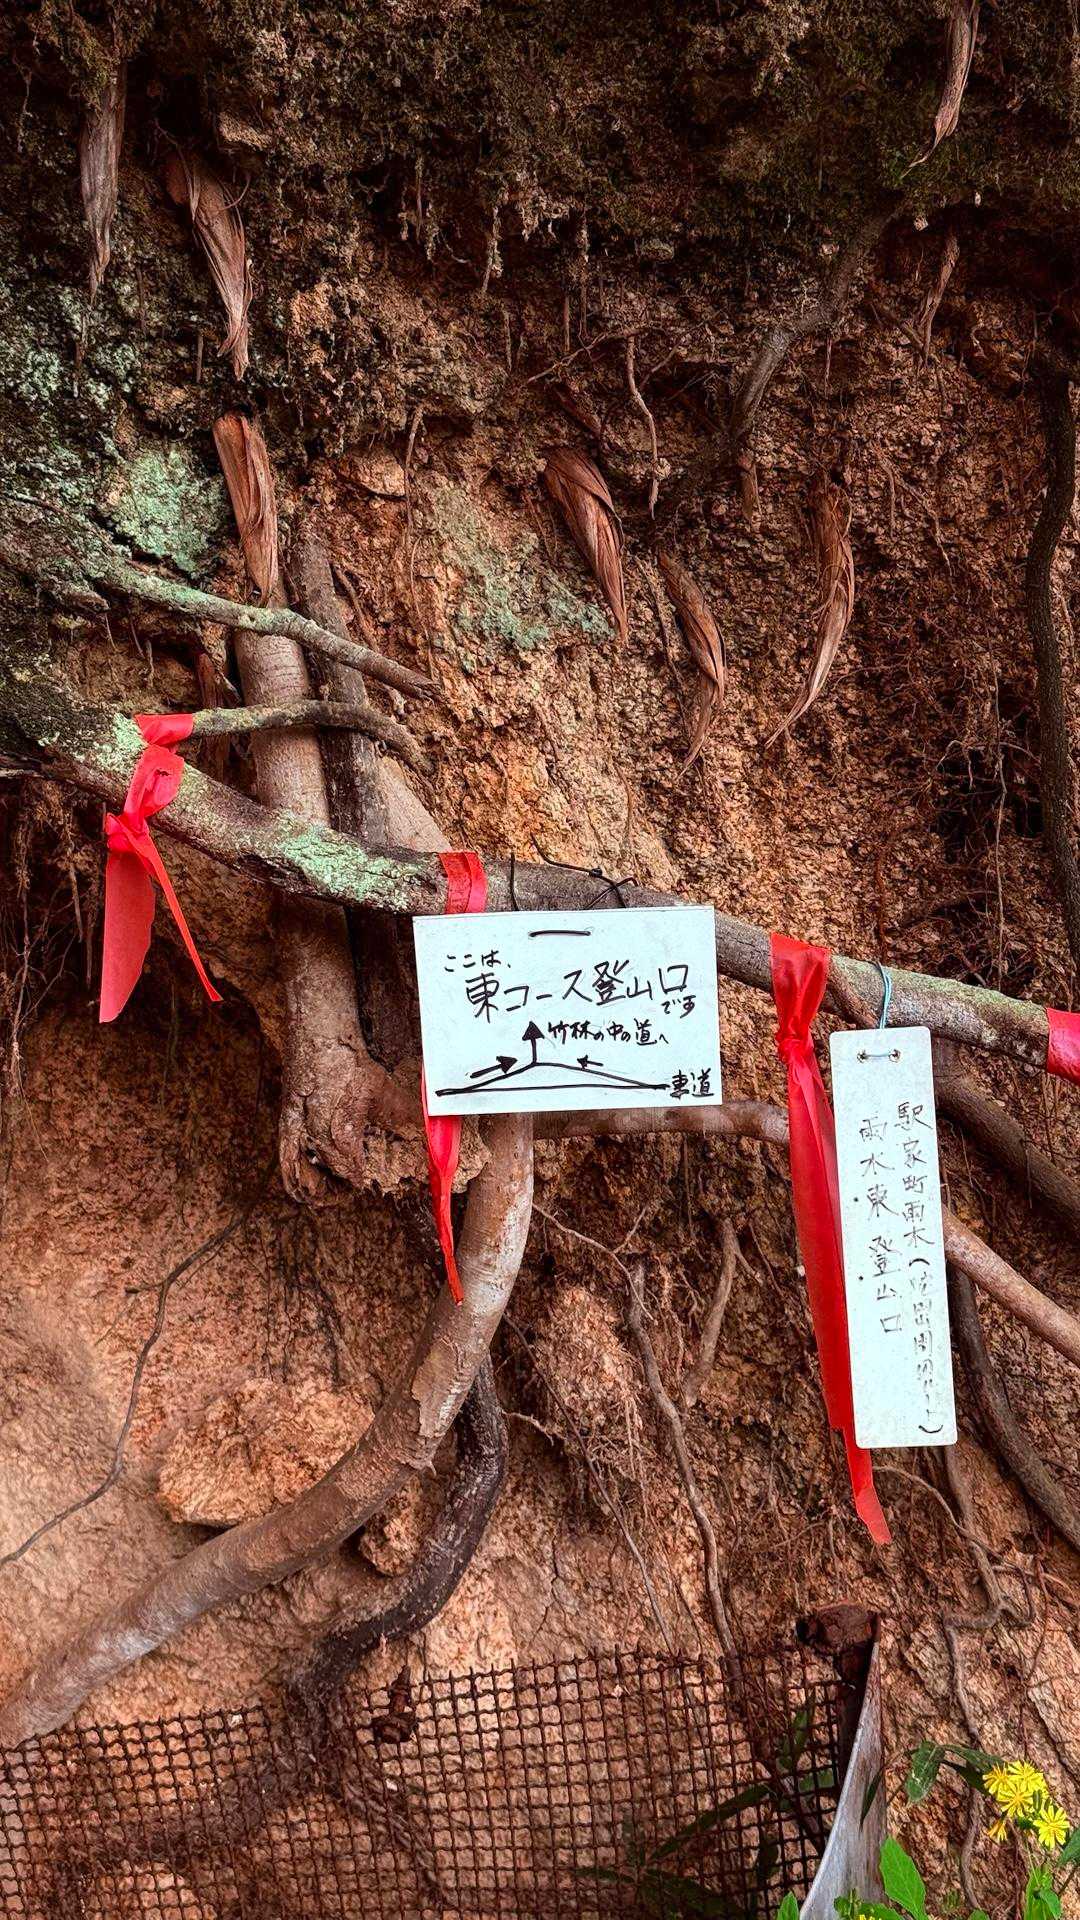 ここは、
東コース登山口
です
竹林の中の道へ
車道
駅家町雨木(
雨木東登山口